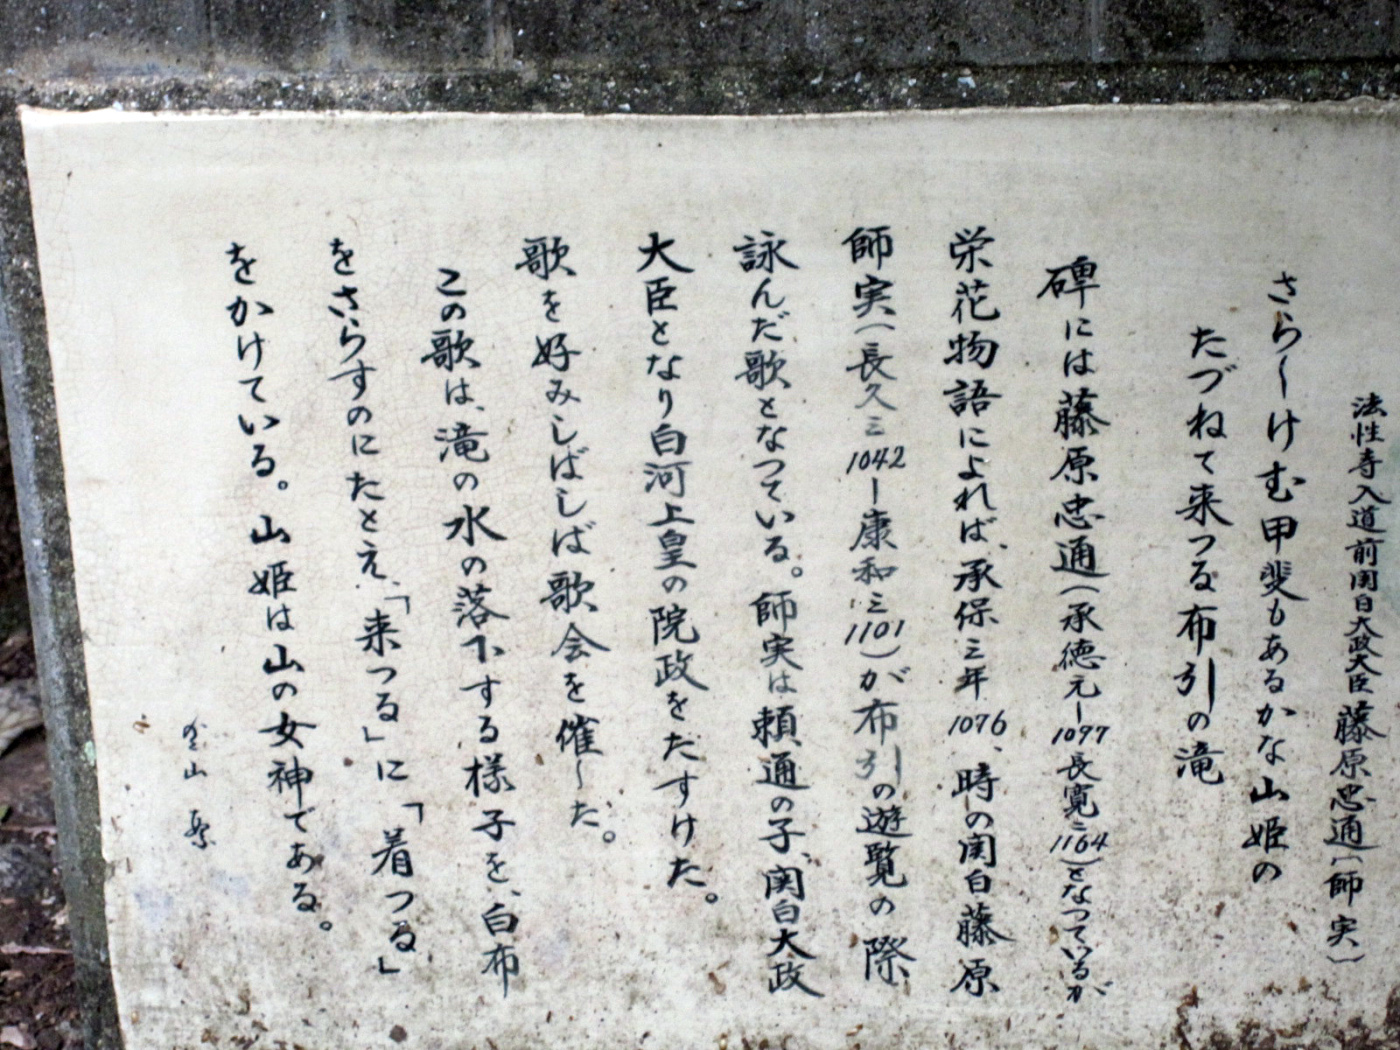 法性寺入道前関白太政大臣 藤原忠通(師実)
さらしけむ甲斐もあるかな山姫の
たづねて来つる布引の滝
碑には藤原忠通(承徳元ー1097長寛ニ1164)となっているが
栄花物語によれば、承保三年1076、時の関白藤原
師実(長久三1042ー康和三1101)が布引の遊覧の際
詠んだ歌となっている。師実は頼通の子、関白大政
大臣となり白河上皇の院政をたすけた。
歌を好みしばしば歌会を催した。
この歌は、滝の水の落下する様子を、白布
をさらすのにたとえ、「来つる」に「着つる」
をかけている。山姫は山の女神である。